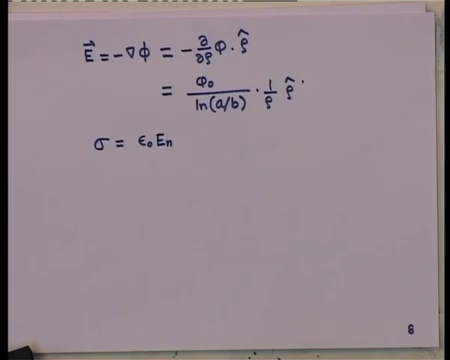 E⃗ = -∇φ = -∂/∂ρ φ · ρ̂
= φ₀/ln(a/b) · 1/ρ ρ̂ ·
σ = ϵ₀ Eₙ
8